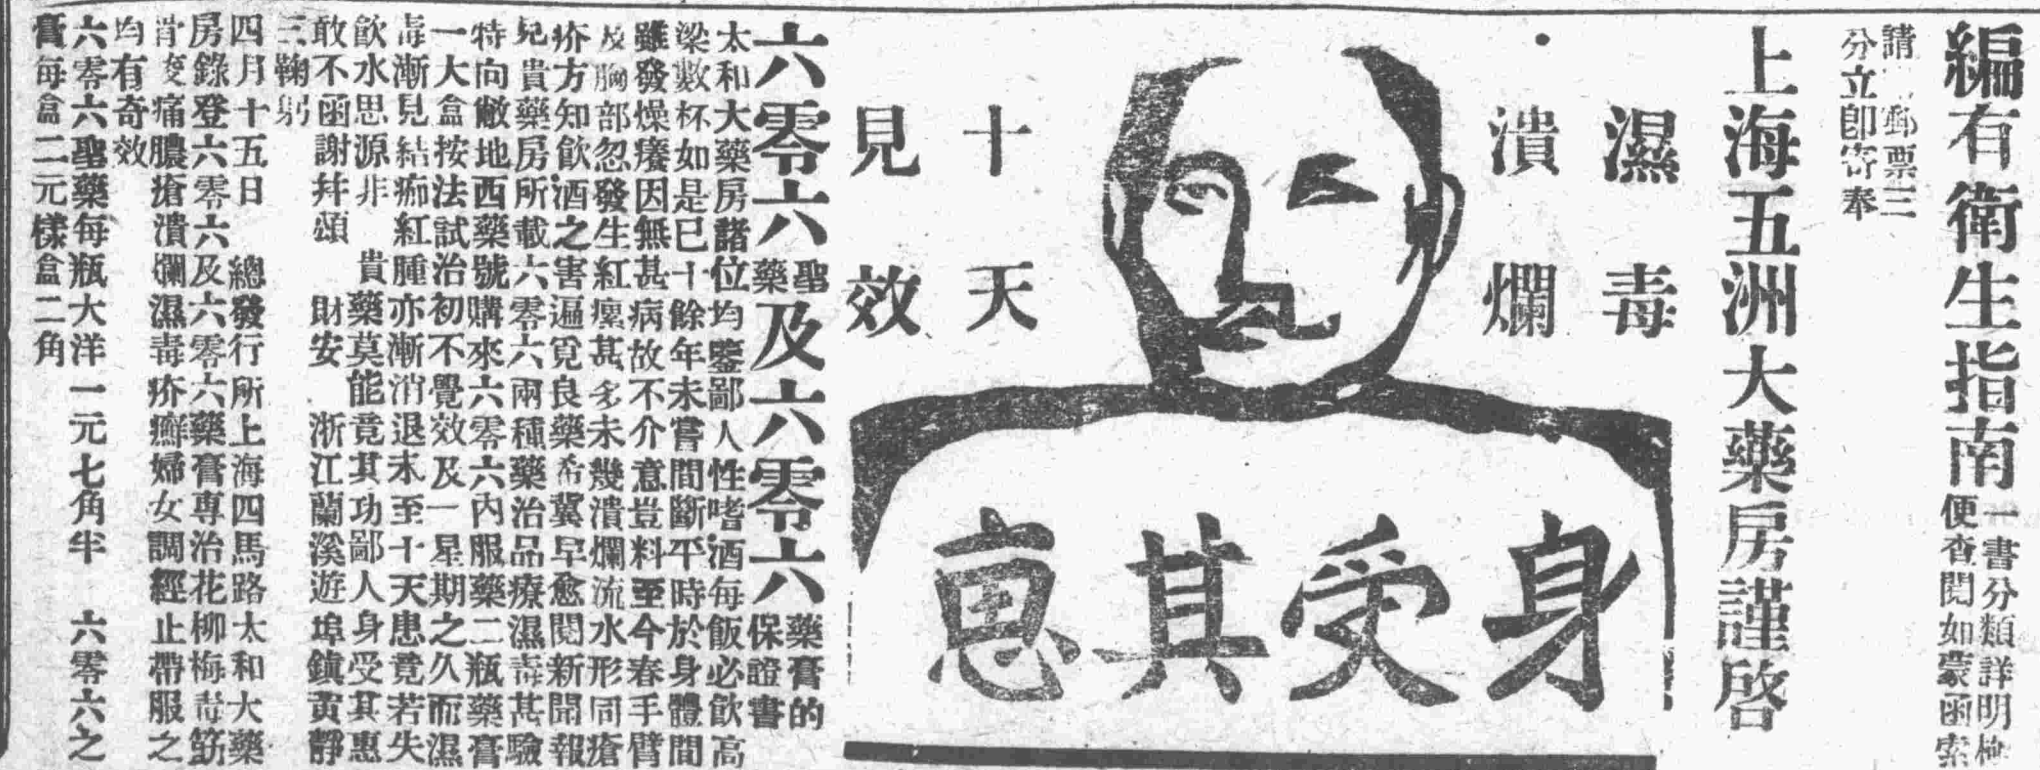 編有衛生指南
一書分類詳明極
便查閱如蒙函索
請郵票三
分立卽寄奉
上海五洲大藥房謹啓
濕毒
潰爛
十天
見效
身受其惠
六零六聖藥及六零六藥膏的保證書
太和大藥房諸位均鑒鄙人性嗜酒每飯必飲高
梁數杯如是已十餘年未嘗間斷平時於身體間
雖發燥癢因無甚病故不介意豈料至今春手臂
及胸部忽發生紅瘰甚多未幾潰爛流水形同瘡
疥方知飲酒之害遍覓良藥希冀早愈閱新聞報
見貴藥房所載六零六兩種藥治品療濕毒甚驗
特向敝地西藥號購來六零六內服藥二瓶藥膏
一大盒按法試治初不覺效及一星期之久而濕
毒漸見結痂紅腫亦漸消退未至十天患竟若失
飲水思源非 貴藥莫能竟其功鄙人身受其惠
敢不函謝幷頌 財安 浙江蘭溪遊埠鎮黃靜
三鞠躬
四月十五日 總發行所上海四馬路太和大藥
房錄登六零六及六零六藥膏專治花柳梅毒筋
骨痠痛膿瘡潰爛濕毒疥癬婦女調經止帶服之
均有奇效
六零六聖藥每瓶大洋一元七角半 六零六之
膏每盒二元樣盒二角